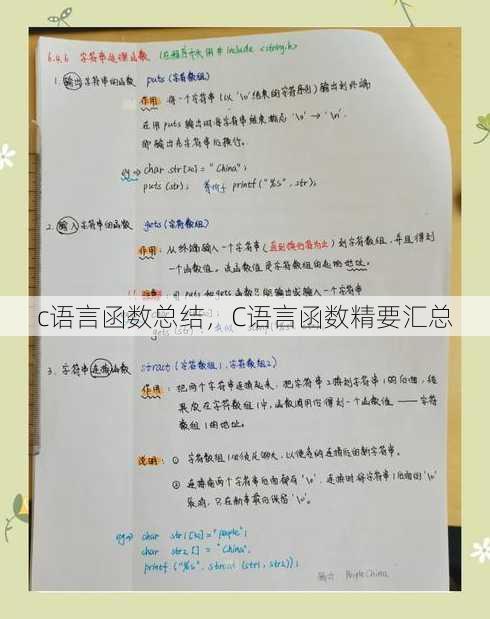 6.4.6 字符串处理函数 (在程序开头用 #include <string.h>
1. 输出字符串的函数 puts (字符数组)
作用: 将一个字符串 (以 '\0' 结束的字符序列) 输出到终端
在用 puts 输出时将字符串结束标志 '\0' → '\n'.
即输出完字符串后换行。
char str[20] = "China";
puts (str); 等价于 printf ("%s", str);
2. 输入字符串的函数 gets (字符数组)
作用: 从终端输入一个字符串 (直到换行符为止) 到字符数组, 并且得到
一个函数值。该函数值是字符数组的起始地址。
!! 注意: 用 puts 和 gets 函数只能输出或输入一个字符串
c语言函数总结,C语言函数精要汇总
3. 字符串连接函数 strcat (字符数组1, 字符数组2)
作用: 把两个字符串连接起来, 把字符串2接到字符串1的后面, 结
果放在字符数组1中, 函数调用后得到一个函数值 —— 字符
数组1的地址。
说明: ① 字符数组1必须足够大, 以便容纳连接后的新字符串。
② 连接前两个字符串后面都有 '\0', 连接时将字符串1后面的 '\0'
取消, 只在新串最后保留 '\0'.
eg→ char str1[30] = "people";
char str2[] = "China";
printf ("%s", strcat (str1, str2));
输出 PeopleChina